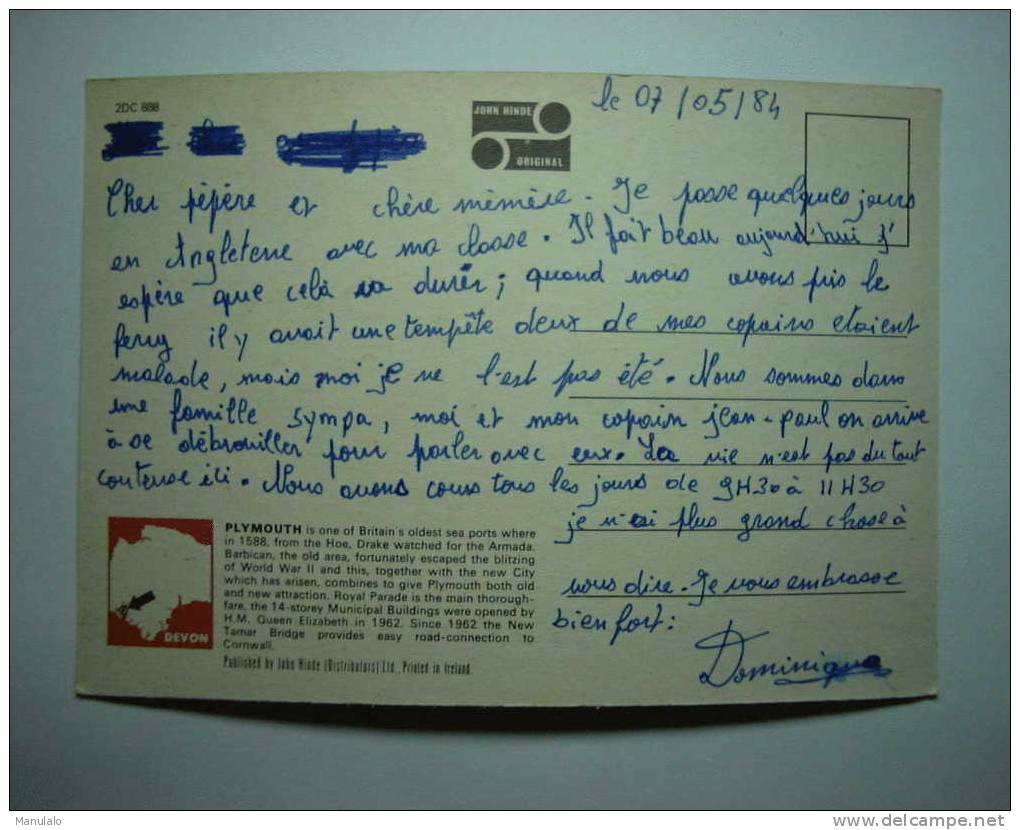 2DC 888
le 07/05/84
JOHN HINDE
ORIGINAL
Cher pépère et chère mémère. Je passe quelques jours
en Angleterre avec ma classe. Il fait beau aujourd'hui j'
espère que celà va durer; quand nous avons pris le
ferry il y avait une tempête deux de mes copains etaient
malade, mais moi je ne l'est pas été. Nous sommes dans
une famille sympa, moi et mon copain jean-paul on arrive
à se débrouiller pour parler avec eux. La vie n'est pas du tout
couteuse ici. Nous avons cours tous les jours de 9H30 à 11H30
je n'ai plus grand chose à
vous dire. Je vous embrasse
bien fort:
Dominique
PLYMOUTH is one of Britain's oldest sea ports where
in 1588, from the Hoe, Drake watched for the Armada.
Barbican, the old area, fortunately escaped the blitzing
of World War II and this, together with the new City
which has arisen, combines to give Plymouth both old
and new attraction. Royal Parade is the main thorough-
fare, the 14-storey Municipal Buildings were opened by
H.M. Queen Elizabeth in 1962. Since 1962 the New
Tamar Bridge provides easy road-connection to
Cornwall.
DEVON
Published by John Hinde (Distributors) Ltd., Printed in Ireland
Manulalo
www.delcampe.net